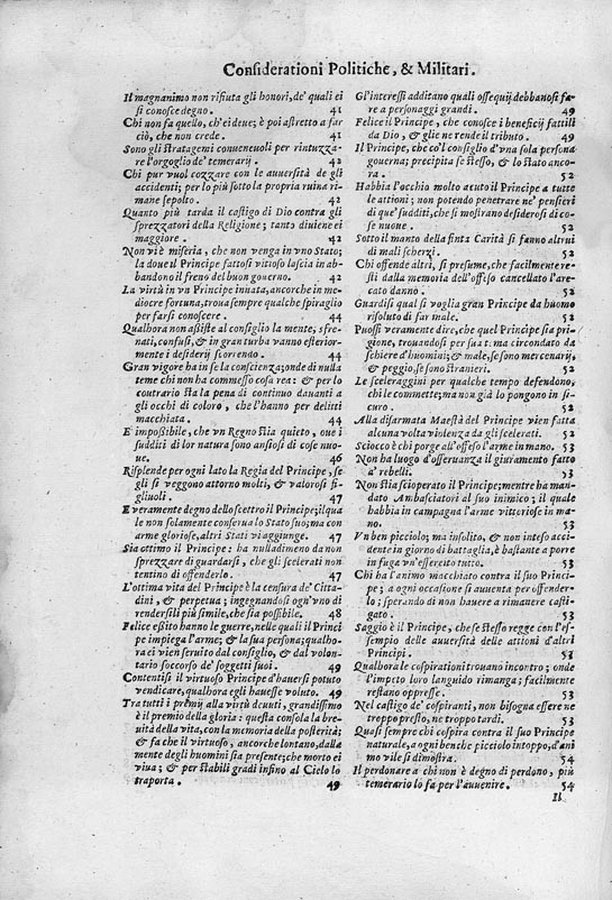 Considerationi Politiche, & Militari.
Il magnanimo non rifiuta gli honori, de' quali ei
si conosce degno. 41
Chi non fa quello, ch'ei deue; è poi astretto a far
ciò, che non crede. 41
Sono gli stratagemi conueneuoli per rintuzza-
re l'orgoglio de' temerarij. 42
Chi pur vuol cozzare con le auuersità de gli
accidenti; per lo più sotto la propria ruina ri-
mane sepolto. 42
Quanto più tarda il castigo di Dio contra gli
sprezzatori della Religione; tanto diuiene ei
maggiore. 42
Non vi è miseria, che non venga in vno Stato;
la doue il Principe fattosi vitioso lascia in ab-
bandono il freno del buon gouerno. 42
La virtù in vn Principe innata, ancorche in me-
diocre fortuna, troua sempre qualche spiraglio
per farsi conoscere. 44
Qualhora non assiste al consiglio la mente; sfre-
nati, confusi, & in gran turba vanno esterior-
mente i desiderij scorrendo. 44
Gran vigore ha in se la conscienza; onde di nulla
teme chi non ha commesso cosa rea: & per lo
contrario sta la pena di continuo dauanti a
gli occhi di coloro, che l'hanno per delitti
macchiata. 44
E impossibile, che vn Regno stia quieto, oue i
sudditi di lor natura sono ansiosi di cose nuo-
ue. 46
Risplende per ogni lato la Regia del Principe, se
gli si veggono attorno molti, & valorosi fi-
gliuoli. 47
E veramente degno dello scettro il Principe; il qua
le non solamente conserua lo Stato suo; ma con
arme gloriose, altri Stati vi aggiunge. 47
Sia ottimo il Principe: ha nulladimeno da non
sprezzare di guardarsi, che gli scelerati non
tentino di offenderlo. 47
L'ottima vita del Principe è la censura de' Citta-
dini, & perpetua; ingegnandosi ogn'vno di
rendersili più simile, che sia possibile. 48
Felice essito hanno le guerre, nelle quali il Princi
pe impiega l'arme; & la sua persona; qualho-
ra ei vien seruito dal consiglio, & dal volon-
tario soccorso de' soggetti suoi. 49
Contentisi il virtuoso Principe d'hauersi potuto
vendicare, qualhora egli hauesse voluto. 49
Tra tutti i premij alla virtù douuti, grandissimo
è il premio della gloria: questa consola la bre-
uità della vita, con la memoria della posterità;
& fa che il virtuoso, ancorche lontano, dalla
mente degli huomini sia presente; che morto ei
viua; & per stabili gradi infino al Cielo lo
traporta. 49
Gl'interessi additano quali ossequij debbanosi fa-
re a personaggi grandi. 49
Felice il Principe, che conosce i beneficij fattili
da Dio, & glie ne rende il tributo. 49
Il Principe, che co'l consiglio d'vna sola persona
gouerna; precipita se stesso, & lo stato anco-
ra. 52
Habbia l'occhio molto acuto il Principe a tutte
le attioni; non potendo penetrare ne' pensieri
di que' sudditi, che si mostrano desiderosi di co-
se nuoue. 52
Sotto il manto della finta Carità si fanno altrui
di mali scherzi. 52
Chi offende altri, si presume, che facilmente re-
sti dalla memoria dell'offeso cancellato l'are-
cato danno. 52
Guardisi qual si voglia gran Principe da huomo
risoluto di far male. 52
Puossi veramente dire, che quel Principe sia pri-
gione, trouandosi per sua t: ma circondato da
schiere d'huomini; & male, se sono mercenarij,
& peggio, se sono stranieri. 52
Le sceleraggini per qualche tempo defendono,
chi le commette; ma non già lo pongono in si-
curo. 52
Alla disarmata Maestà del Principe vien fatta
alcuna volta violenza da gli scelerati. 52
Sciocco è chi porge all'offeso l'arme in mano. 53
Non ha luogo d'osseruanza il giuramento fatto
a' rebelli. 53
Non stia scioperato il Principe; mentre ha man-
dato Ambasciatori al suo inimico; il quale
habbia in campagna l'arme vittoriose in ma-
no. 53
Vn ben picciolo; ma insolito, & non inteso acci-
dente in giorno di battaglia, è bastante a porre
in fuga vn'essercito tutto. 53
Chi ha l'animo macchiato contra il suo Princi-
pe; a ogni occasione si auuenta per offender-
lo; sperando di non hauere a rimanere casti-
gato. 53
Saggio è il Principe, che se stesso regge con l'es-
sempio delle auuersità delle attioni d'altri
Principi. 53
Qualhora le cospirationi trouano incontro; onde
l'impeto loro languido rimanga; facilmente
restano oppresse. 53
Nel castigo de' cospiranti, non bisogna essere ne
troppo presto, ne troppo tardi. 53
Quasi sempre chi cospira contra il suo Principe
naturale, a ogni benche picciolo intoppo, d'ani
mo vile si dimostra. 54
Il perdonare a chi non è degno di perdono, più
temerario lo fa per l'auuenire. 54
Il